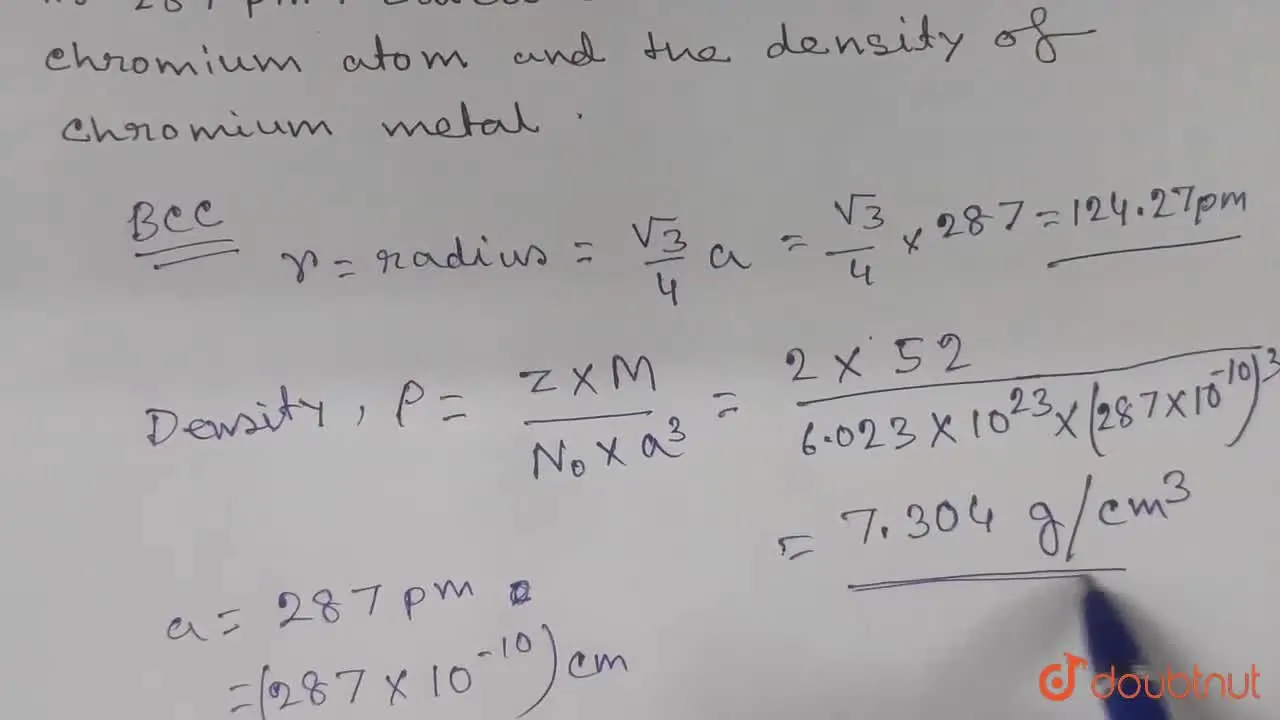 287 pm
chromium atom and the density of
chromium metal.
BCC
r = radius = √3/4 a = √3/4 × 287 = 124.27pm
Density, ρ = Z×M / N₀×a³ = 2 × 52 / 6.023×10²³×(287×10⁻¹⁰)³
= 7.304 g/cm³
a = 287 pm
= (287×10⁻¹⁰) cm
doubtnut